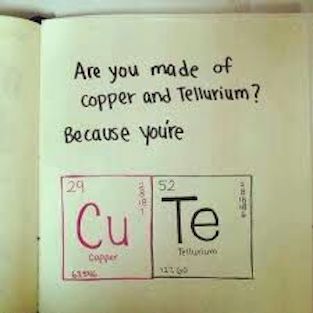 Are you made of
copper and Tellurium?
Because you're
29
2
8
18
1
Cu
Copper
63.546
52
2
8
18
18
6
Te
Tellurium
127.60